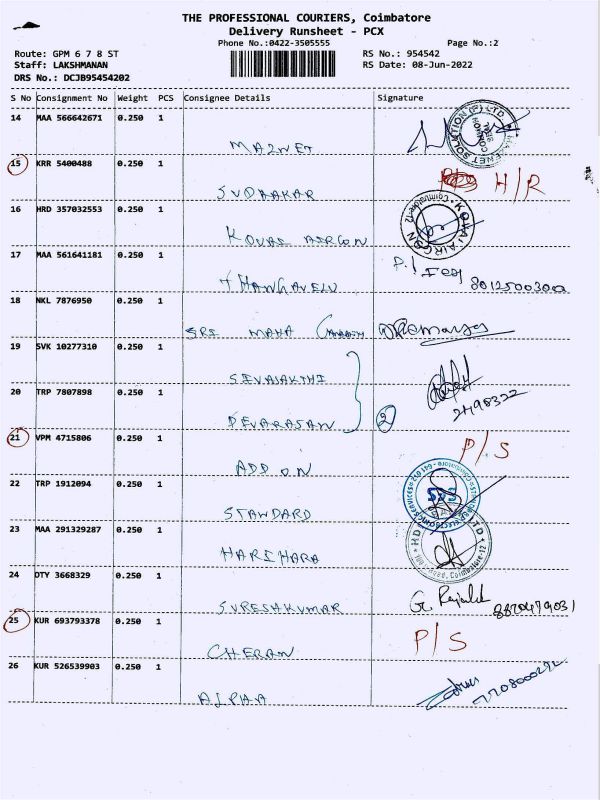 THE PROFESSIONAL COURIERS, Coimbatore
Delivery Runsheet - PCX
Phone No.:0422-3505555 Page No.:2
Route: GPM 6 7 8 ST RS No.: 954542
Staff: LAKSHMANAN RS Date: 08-Jun-2022
DRS No.: DCJB95454202
S No Consignment No Weight PCS Consignee Details Signature
14 MAA 566642671 0.250 1
MAZNET
15 KRR 5400488 0.250 1
H/R
SUDAAKAR
16 HRD 357032553 0.250 1
KOVAI AIRCON
17 MAA 561641181 0.250 1
THANGAVELU 80125003002
18 NKL 7876950 0.250 1
SRI MAHA
19 SVK 10277310 0.250 1
SIVASAKTHI
20 TRP 7807898 0.250 1
DEVARASAN 2
21 VPM 4715806 0.250 1 P/S
ADD ON
22 TRP 1912094 0.250 1
STANDARD
23 MAA 291329287 0.250 1
HARIHARA
24 DTY 3668329 0.250 1
SURESHKUMAR 8870479031
25 KUR 693793378 0.250 1 P/S
CHERAN
26 KUR 526539903 0.250 1
ALPHA